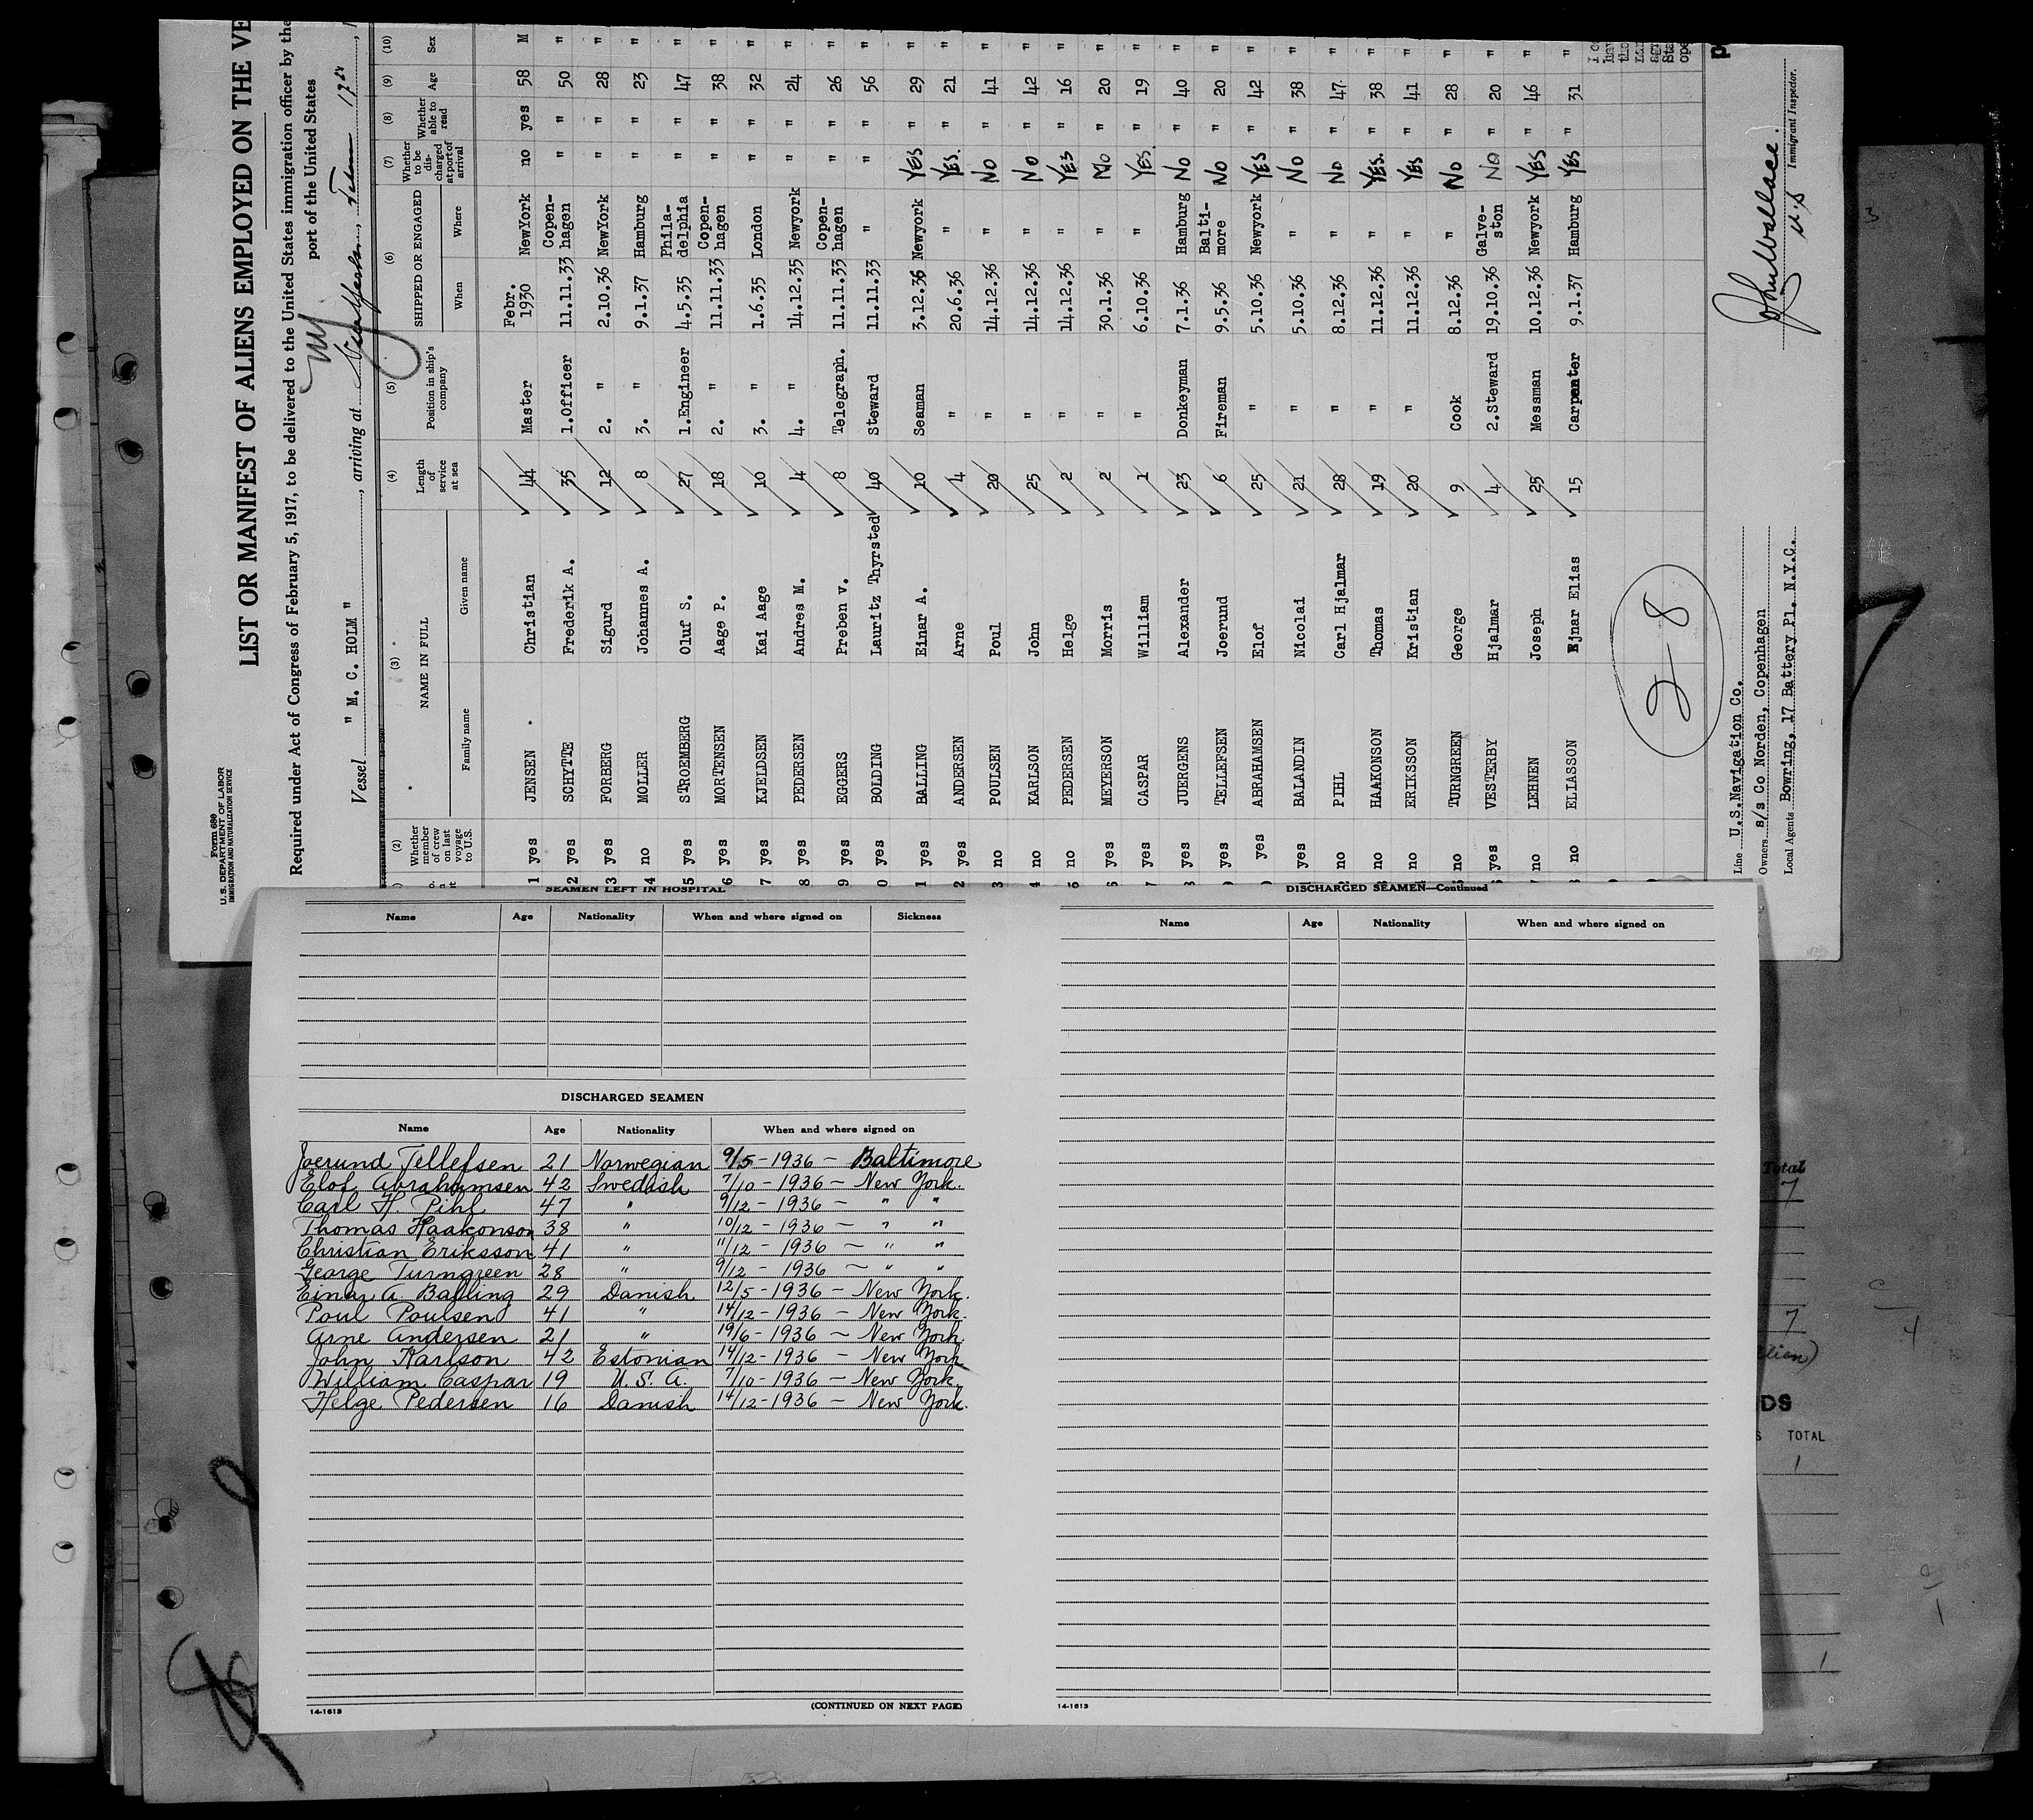 Form 680
U.S. DEPARTMENT OF LABOR
IMMIGRATION AND NATURALIZATION SERVICE
LIST OR MANIFEST OF ALIENS EMPLOYED ON THE VE
Required under Act of Congress of February 5, 1917, to be delivered to the United States immigration officer by the
port of the United States
Vessel " M. C. HOLM ", arriving at
(2) (3) (4) (5) (6) (7) (8) (9) (10)
Whether member of crew on last voyage to U.S. NAME IN FULL Length of service at sea Position in ship's company SHIPPED OR ENGAGED Whether to be discharged at port of arrival Whether able to read Age Sex
Family name Given name When Where
1 yes JENSEN . Christian 44 Master Febr. 1930 NewYork no yes 58 M
2 yes SCHYTTE Frederik A. 35 1.Officer 11.11.33 Copen-hagen " " 50 "
3 yes FORBERG Sigurd 12 2. " 2.10.36 NewYork " " 28 "
4 no MOLLER Johannes A. 8 3. " 9.1.37 Hamburg " " 23 "
5 yes STROEMBERG Oluf S. 27 1.Engineer 4.5.35 Phila-delphia " " 47 "
6 yes MORTENSEN Aage P. 18 2. " 11.11.33 Copen-hagen " " 38 "
7 yes KJELDSEN Kai Aage 10 3. " 1.6.35 London " " 32 "
8 yes PEDERSEN Andres M. 4 4. " 14.12.35 Newyork " " 24 "
9 yes EGGERS Preben v. 8 Telegraph. 11.11.33 Copen-hagen " " 26 "
0 yes BOLDING Lauritz Thyrsted 40 Steward 11.11.33 " " " 56 "
1 yes BALLING Einar A. 10 Seaman 3.12.36 Newyork YES " 29 "
2 yes ANDERSEN Arne 4 " 20.6.36 " YES. " 21 "
3 no POULSEN Poul 20 " 14.12.36 " NO " 41 "
4 no KARLSON John 25 " 14.12.36 " NO " 42 "
5 no PEDERSEN Helge 2 " 14.12.36 " YES " 16 "
6 yes MEYERSON Morris 2 " 30.1.36 " NO " 20 "
7 yes CASPAR William 1 " 6.10.36 " YES. " 19 "
8 yes JUERGENS Alexander 23 Donkeyman 7.1.36 Hamburg NO " 40 "
9 yes TELLEFSEN Joerund 6 Fireman 9.5.36 Balti-more NO " 20 "
0 yes ABRAHAMSEN Elof 25 " 5.10.36 Newyork YES " 42 "
yes BALANDIN Nicolai 21 " 5.10.36 " NO " 38 "
no PIHL Carl Hjalmar 28 " 8.12.36 " NO " 47 "
no HAAKONSON Thomas 19 " 11.12.36 " YES. " 38 "
no ERIKSSON Kristian 20 " 11.12.36 " YES " 41 "
no TURNGREEN George 9 Cook 8.12.36 " NO " 28 "
yes VESTERBY Hjalmar 4 2.Steward 19.10.36 Galve-ston NO " 20 "
no LEHNEN Joseph 25 Messman 10.12.36 Newyork YES " 46 "
no ELIASSON Ejnar Elias 15 Carpenter 9.1.37 Hamburg YES " 31 "
2-8
Line U.S.Navigation Co.
Owners s/s Co Norden, Copenhagen
Local Agents Bowring, 17 Battery Pl. N.Y.C.
John Wallace.
U.S Immigrant Inspector.
SEAMEN LEFT IN HOSPITAL
Name Age Nationality When and where signed on Sickness
DISCHARGED SEAMEN
Name Age Nationality When and where signed on
Joerund Tellefsen 21 Norwegian 9/5 - 1936 - Baltimore
Elof Abrahamsen 42 Swedish 7/10 - 1936 - New York.
Carl H. Pihl 47 " 9/12 - 1936 - " "
Thomas Haakonson 38 " 10/12 - 1936 - " "
Christian Eriksson 41 " 11/12 - 1936 - " "
George Turngreen 28 " 9/12 - 1936 - " "
Einar A. Balling 29 Danish 12/5 - 1936 - New York.
Poul Poulsen 41 " 14/12 - 1936 - New York.
Arne Andersen 21 " 19/6 - 1936 - New York.
John Karlson 42 Estonian 14/12 - 1936 - New York
William Caspar 19 U.S.A. 7/10 - 1936 - New York.
Helge Pedersen 16 Danish 14/12 - 1936 - New York.
14-1613
(CONTINUED ON NEXT PAGE)
DISCHARGED SEAMEN—Continued
Name Age Nationality When and where signed on
14-1613
Total
7
7
DS
S TOTAL
1
1